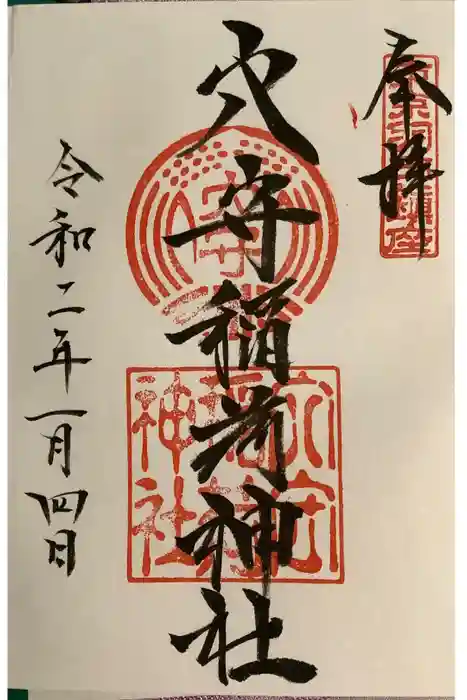 奉拝
穴守稲荷神社
穴守
稲荷
神社
令和二年一月四日